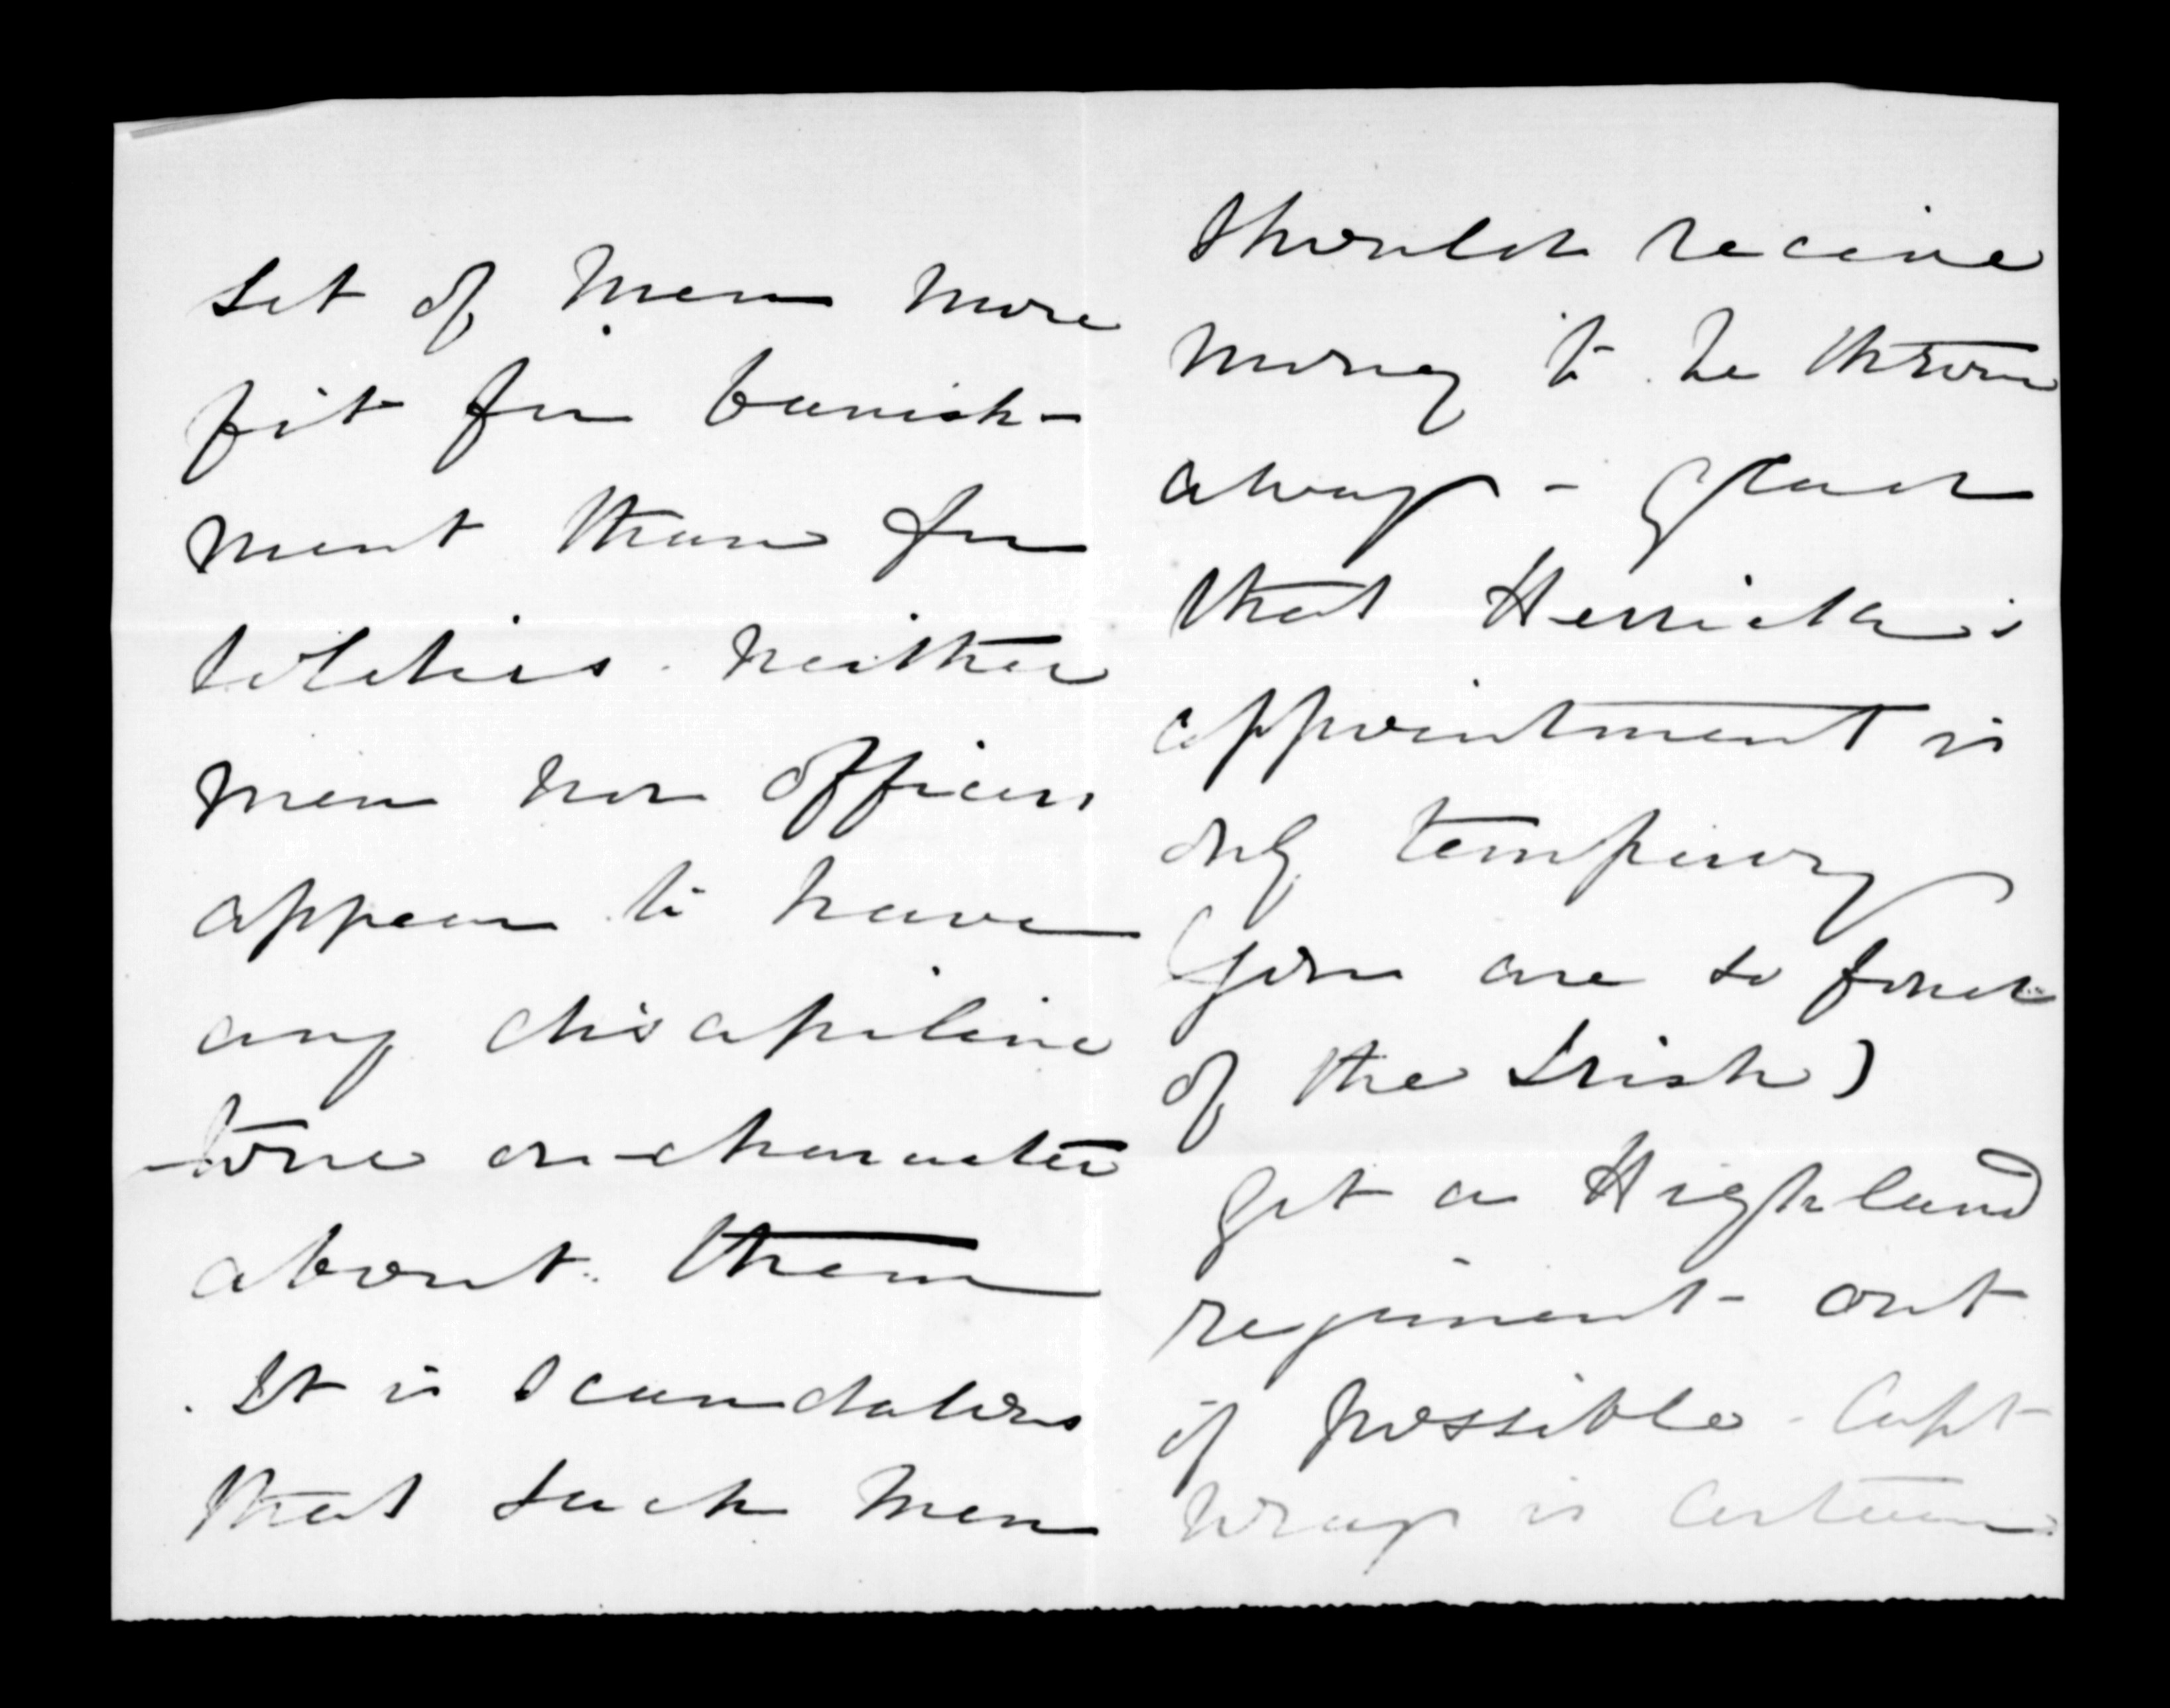 set of men more
fit for banish-
ment than for
soldiers. neither
men nor officers
appear to have
any discipline
tone or character
about them
It is scandalous
that such men
should receive
money to be thrown
away - glad
that Herrick's
appointment is
only temporary
(you are so fond
of the Irish)
get a Highland
regiment - out
if possible - Capt
Wray is certain